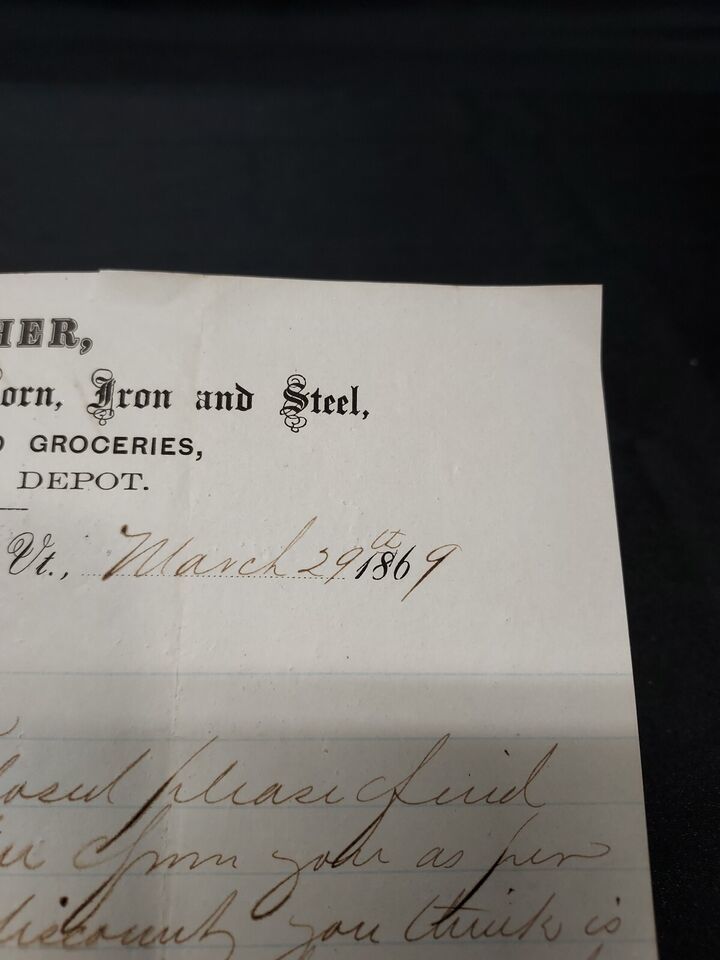 HER,
orn, Iron and Steel,
GROCERIES,
DEPOT.
Vt., March 29th 1869
losed please find
from you as per
discount you think is